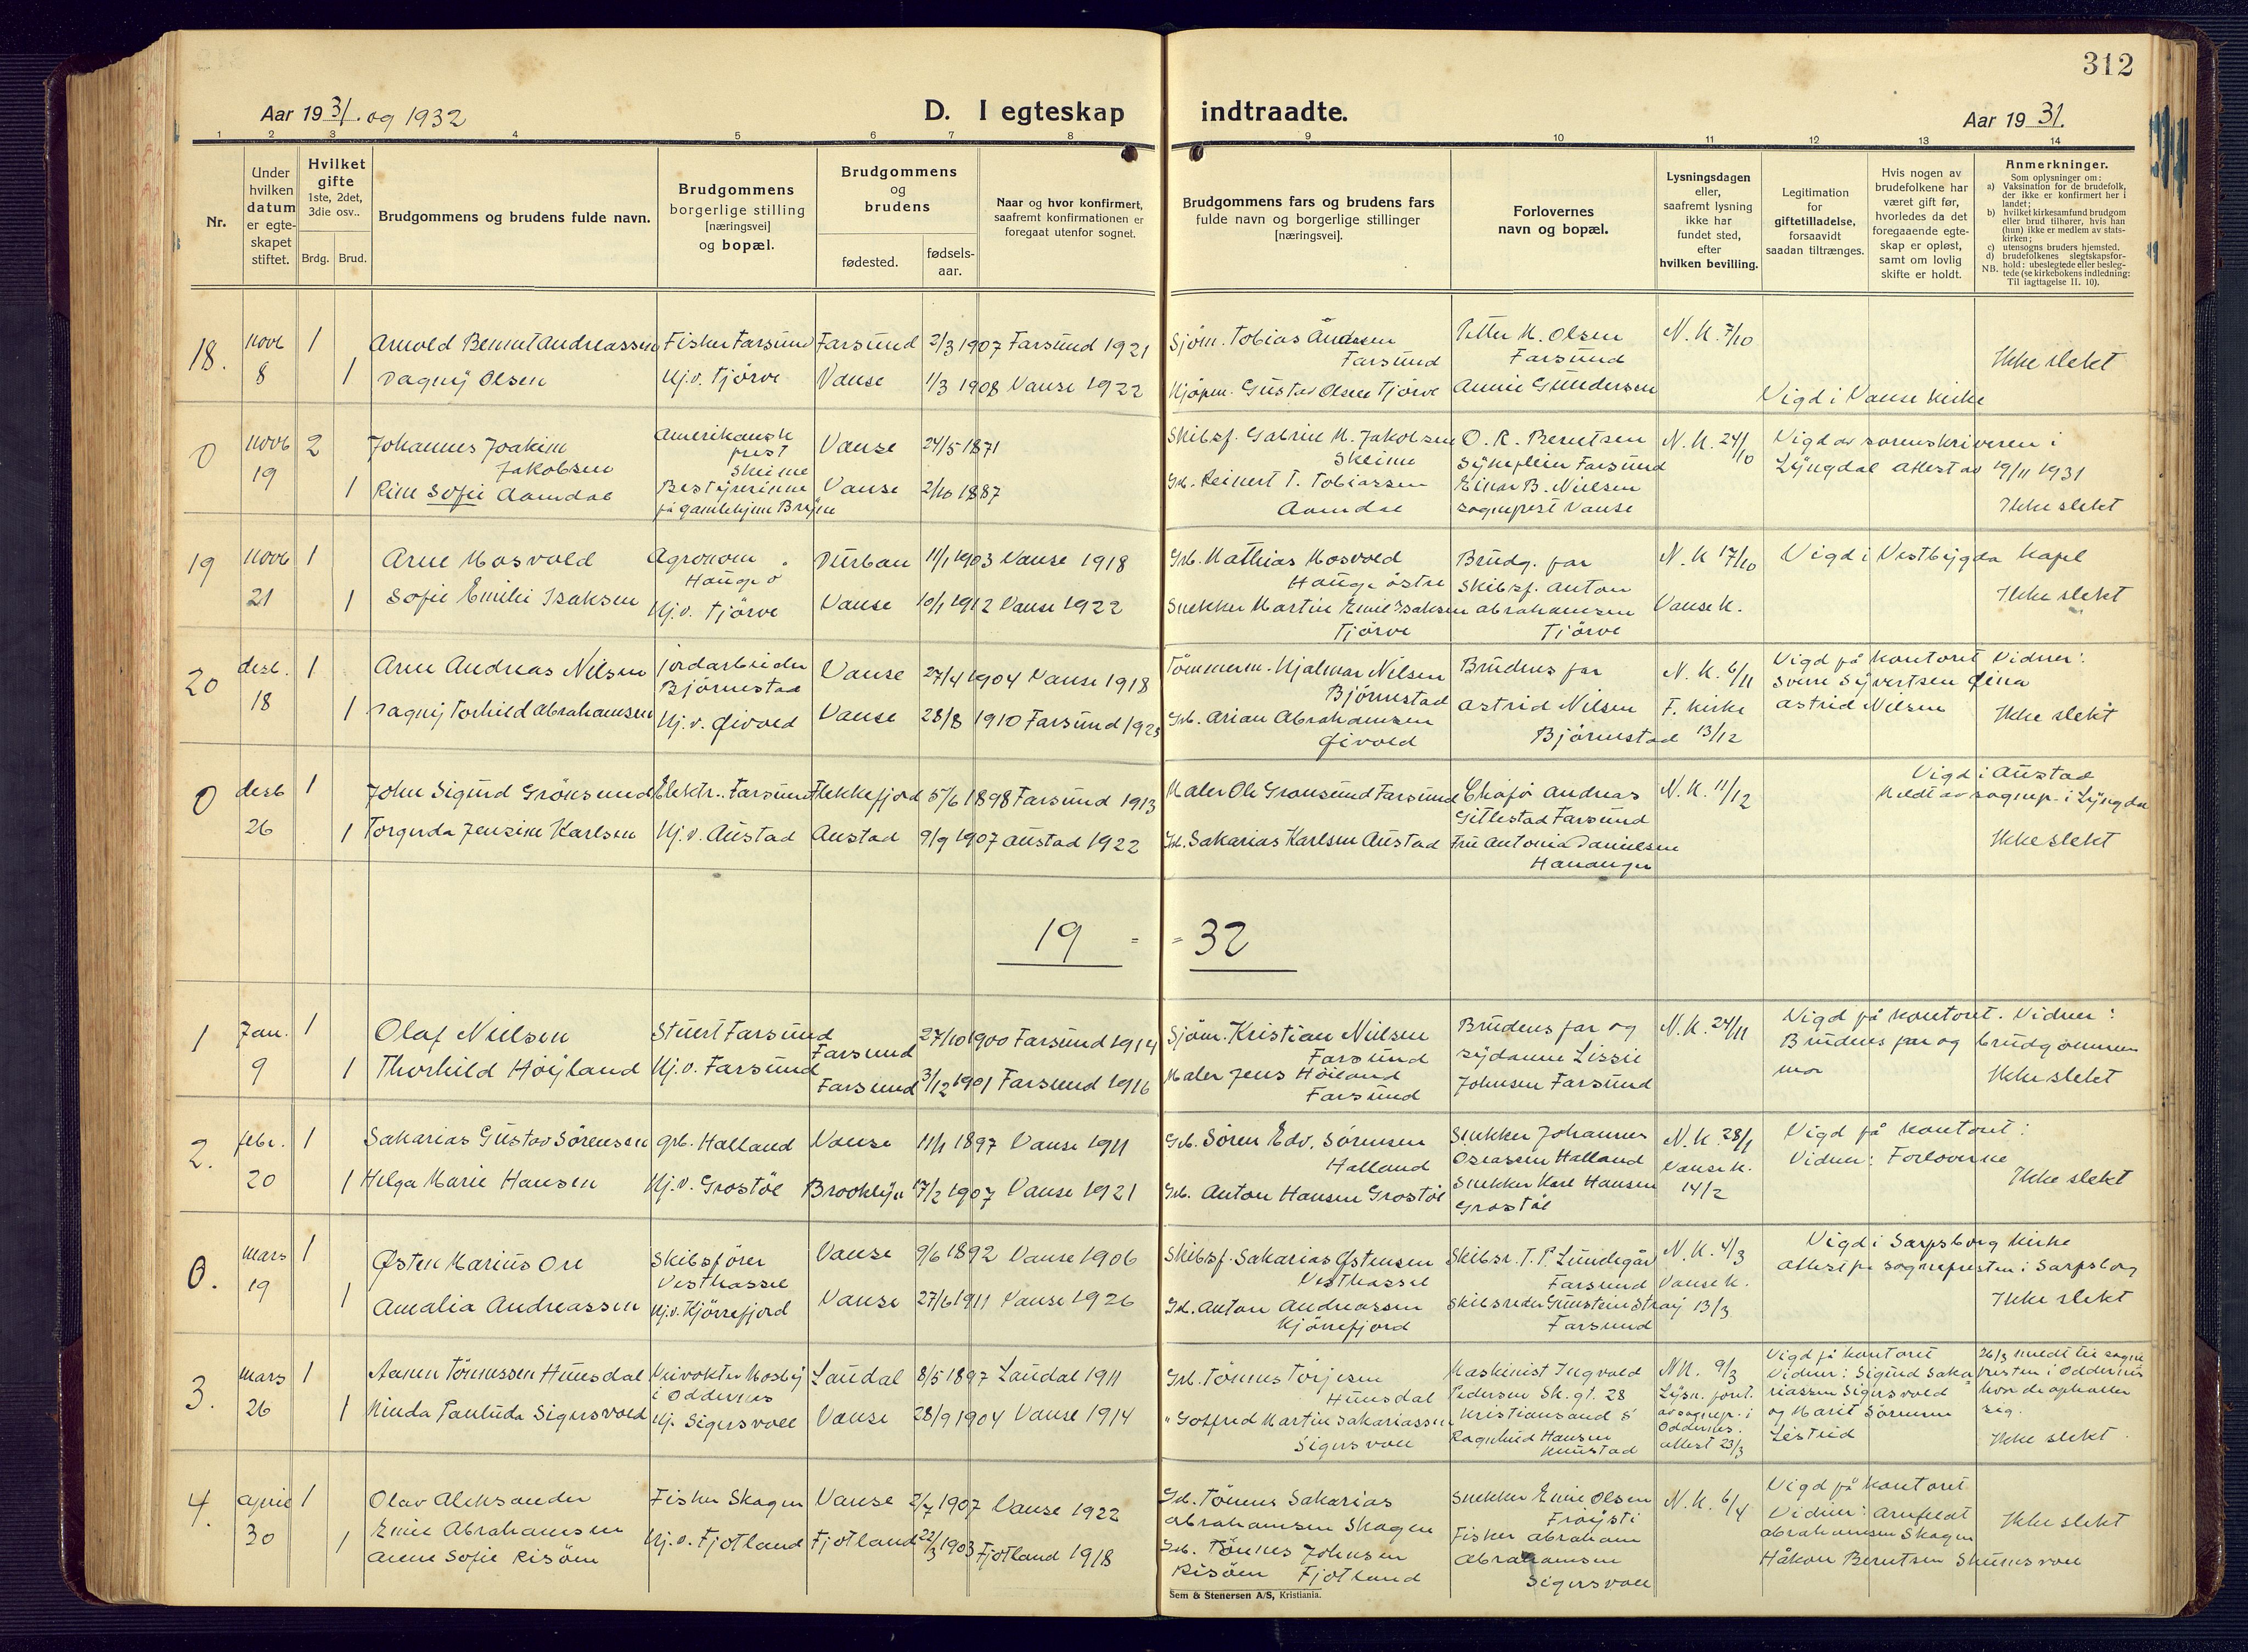 312
Aar 1931. og 1932
D. I egteskap
indtraadte.
Aar 1931.
1 2 3 4 5 6 7 8 9 10 11 12 13 14
Nr.
Under
hvilken
datum
er egte-
skapet
stiftet.
Hvilket
gifte
1ste, 2det,
3die osv..
Brdg. Brud.
Brudgommens og brudens fulde navn.
Brudgommens
borgerlige stilling
[næringsvei]
og bopæl.
Brudgommens
og
brudens
fødested.
fødsels-
aar.
Naar og hvor konfirmert,
saafremt konfirmationen er
foregaat utenfor sognet.
Brudgommens fars og brudens fars
fulde navn og borgerlige stillinger
[næringsvei].
Forlovernes
navn og bopæl.
Lysningsdagen
eller,
saafremt lysning
ikke har
fundet sted,
efter
hvilken bevilling.
Legitimation
for
giftetilladelse,
forsaavidt
saadan tiltrænges.
Hvis nogen av
brudefolkene har
været gift før,
hvorledes da det
foregaaende egte-
skap er opløst,
samt om lovlig
skifte er holdt.
Anmerkninger.
Som oplysninger om:
a) Vaksination for de brudefolk,
der ikke er konfirmert her i
landet;
b) hvilket kirkesamfund brudgom
eller brud tilhører, hvis han
(hun) ikke er medlem av stats-
kirken;
c) utensogns bruders hjemsted.
d) brudefolkenes slegtskapsfor-
hold: ubeslegtede eller besleg-
NB. tede (se kirkebokens indledning:
Til iagttagelse II. 10).
18.
novb
8
1
1
Arnold Bernt Andreassen
Dagny Olsen
Fisker Farsund
Hj.v. Tjörve
Farsund
Vanse
2/3 1907
1/3 1908
Farsund 1921
Vanse 1922
Sjöm. Tobias Andersen
Farsund
Kjöpm. Gustav Olsen Tjörve
Petter M. Olsen
Farsund
Annie Gundersen
N.K. 7/10
Vigd i Vanse kirke
Ikke slekt
0
novb
19
2
1
Johannes Joakim
Jakobsen
Rine Sofie Aamdal
Amerikansk
prest
Skeime
Bestyrerinne
på gamlehjem Bryne
Vanse
Vanse
24/5 1871
2/10 1887
Skibsf. Gabriel M. Jakobsen
Skeime
Grb. Reinert T. Tobiassen
Aamdal
O. R. Berntsen
Sykepleier Farsund
Einar B. Nielsen
sogneprest Vanse
N.K. 24/10
Vigd av sorenskriveren i
Lyngdal attest av 19/11 1931
Ikke slekt
19
novb
21
1
1
Arne Mosvold
Sofie Emilie Isaksen
Agronom
Hauge ö
Hj.v. Tjörve
Durban
Vanse
11/1 1903
10/1 1912
Vanse 1918
Vanse 1922
Grb. Mathias Mosvold
Hauge östre
Snekker Martin Emil Isaksen
Tjörve
Brudg. far
Skibsf. Anton
Abrahamsen
Tjörve
N.K 17/10
Vanse K.
Vigd i Vestbygda kapel
Ikke slekt
20
desb.
18
1
1
Arne Andreas Nilsen
Dagny Torhild Abrahamsen
jordarbeider
Björnestad
Hj.v. Øivold
Vanse
Vanse
27/4 1904
28/8 1910
Vanse 1918
Farsund 1925
Tömmerm. Hjalmar Nilsen
Björnestad
Grb. Arian Abrahamsen
Øivold
Brudens far
Astrid Nilsen
Björnestad
N.K. 6/11
F. kirke
13/12
Vigd på kontoret Vidner:
Sven Syvertsen
Astrid Nilsen
Ikke slekt
0
desb
26
1
1
John Sigurd Grönsund
Torgerda Jensine Karlsen
Elektr.. Farsund
Hj.v. Austad
Flekkefjord
Austad
5/6 1898
9/9 1907
Farsund 1913
Austad 1922
Maler Ole Gronsund Farsund
Grb. Sakarias Karlsen Austad
Chafför Andreas
Gitlestad Farsund
Fru Antonia Danielsen
Hananger
N.K. 11/12
Vigd i Austad
Meldt av sognep. i Lyngdal
Ikke slekt
19 =
= 32
1
Jan.
9
1
1
Olaf Nielsen
Thorhild Höyland
Stuert Farsund
Hj.v. Farsund
Farsund
Farsund
27/10 1900
3/12 1901
Farsund 1914
Farsund 1916
Sjöm. Kristian Nielsen
Farsund
Maler Jens Höiland
Farsund
Brudens far og
sydame Lissie
Johnsen Farsund
N.K. 24/11
Vigd på kontoret. Vidner:
Brudens far og brudgommens
mor
Ikke slekt
2.
febr.
20
1
1
Sakarias Gustav Sörensen
Helga Marie Hansen
grb. Halland
Hj.v. Grostöl
Vanse
Brooklyn
11/1 1897
17/2 1907
Vanse 1911
Vanse 1921
Grb. Sören Edv. Sörensen
Halland
Grb. Anton Hansen Grostöl
Snekker Johannes
Oseassen Halland
Snekker Karl Hansen
Grostöl
N.K. 28/1
Vanse K.
14/2
Vigd på kontoret:
Vidner: Forloverne
Ikke slekt
0.
mars
19
1
1
Østen Marius Ore
Amalia Andreassen
Skibsförer
Vesthassel
Hj.v. Kjörrefjord
Vanse
Vanse
9/6 1892
27/6 1911
Vanse 1906
Vanse 1926
Skibsf. Sakarias Østensen
Vesthassel
Grb. Anton Andreassen
Kjörrefjord
Skibsr. T. P. Lundegår
Farsund
Skibsreder Gunstein Stray
Farsund
N.K. 4/3
Vanse K.
13/3
Vigd i Sarpsborg kirke
Attest fra sognepresten i Sarpsborg
Ikke slekt
3.
mars
26
1
1
Aanen Tönnessen Hunsdal
Minda Paulida Sigersvold
Mosby
i Oddernes
Hj. Sigersvoll
Laudal
Vanse
8/5 1897
28/9 1904
Laudal 1911
Vanse 1914
Grb. Tönnes Törjesen
Hunsdal
" Gotfred Martin Sakariassen
Sigersvoll
Maskinist Ingvald
Pedersen Sk. gt. 28
Kristiansand S
Ragnhild Hansen
Kunstad
N.K. 9/3
Lysn. foret.
av sognep. i
Oddernes.
Attest 23/3
Vigd på kontoret
Vidner: Sigurd Saka
riassen Sigersvold
og Marit Sörensen
Listeid
26/3 meldt til sogne
presten i Oddernes
hvor de opholder
sig.
Ikke slekt.
4.
april
30
1
1
Olav Aleksander
Emil Abrahamsen
Anne Sofie Risöen
Fisker Skagen
Hj.v. Fjotland
Vanse
Fjotland
2/7 1907
22/3 1903
Vanse 1922
Fjotland 1918
Grb. Tönnes Sakarias
Abrahamsen Skagen
Grb. Tönnes Johnsen
Risöen Fjotland
Snekker Emil Olsen
Fröysti
Fisker Abraham
Abrahamsen
Sigersvoll
N.K. 6/4
Vigd på kontoret
Vidner: Arnfeldt
Abrahamsen Skagen
Håkon Berntsen Skumsvoll
Ikke slekt
Sem & Stenersen A/S, Kristiania.